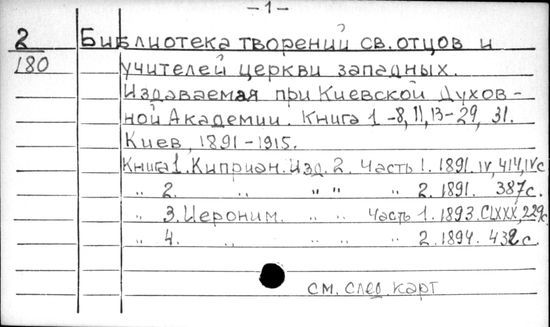 –1–
2 Библиотека творений св. отцов и
180 учителей церкви западных.
Издаваемая при Киевской Духов-
ной Академии. Книга 1-8, 11, 13-29, 31.
Киев, 1891-1915.
Книга 1. Киприан. Изд. 2. Часть 1. 1891. IV, 414, IV с
„ 2. „ „ „ „ 2. 1891. 387 с.
„ 3. Иероним. „ „ Часть 1. 1893. CLXXX, 229 с.
„ 4. „ „ „ „ 2. 1894. с.
см. след карт